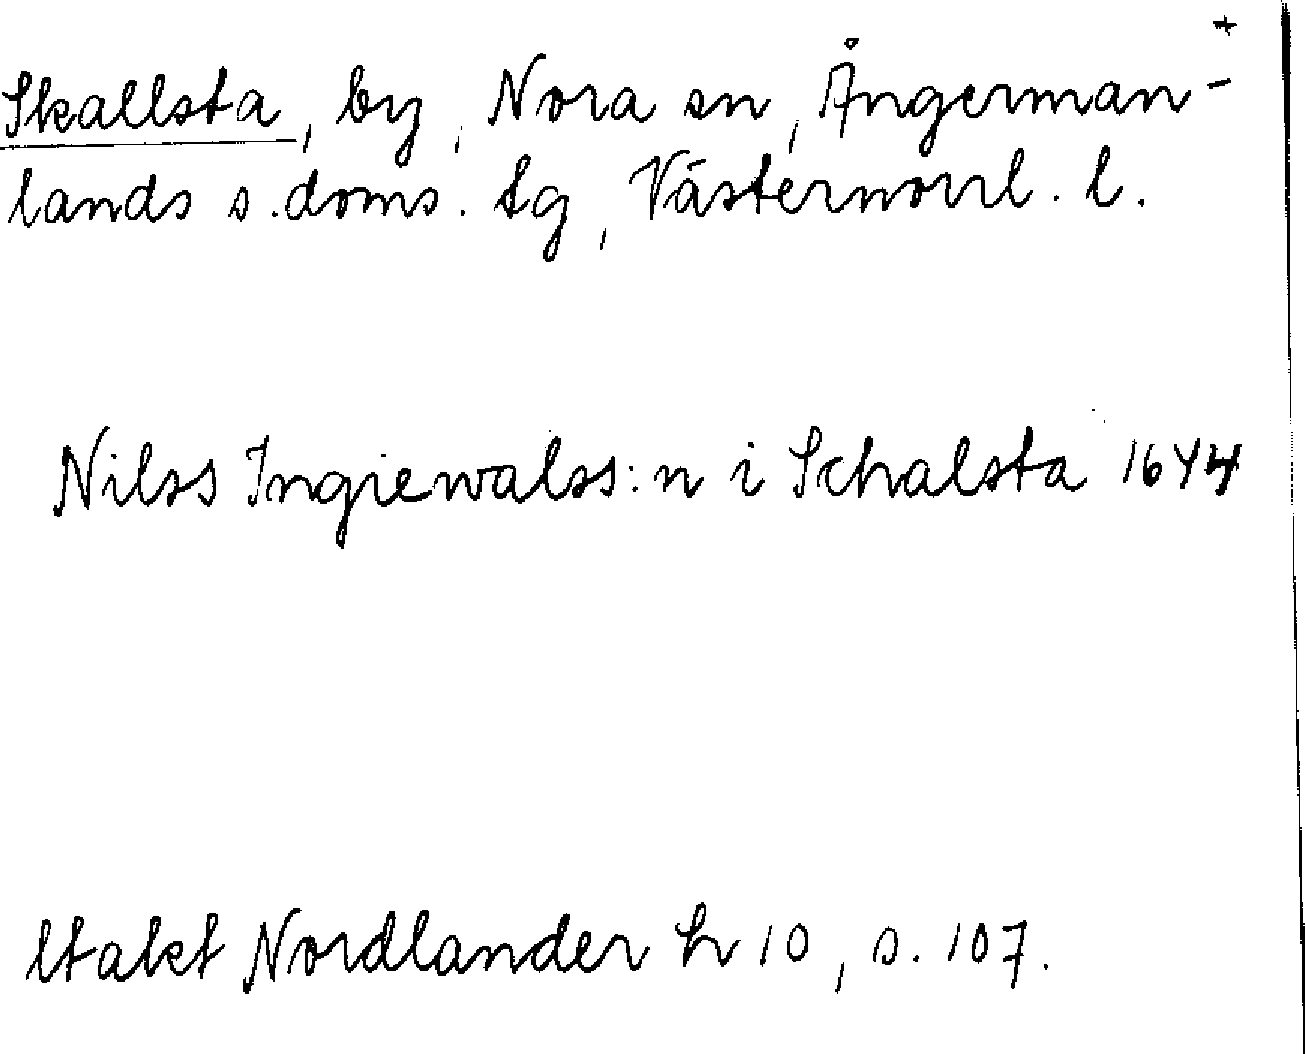 +
Skallsta, by, Nora sn, Ångerman-
lands s. doms. tg, Västernorrl. l.
Nilss Ingiewalss:n i Schalsta 1644
ltakt Nordlander h 10, s. 107.